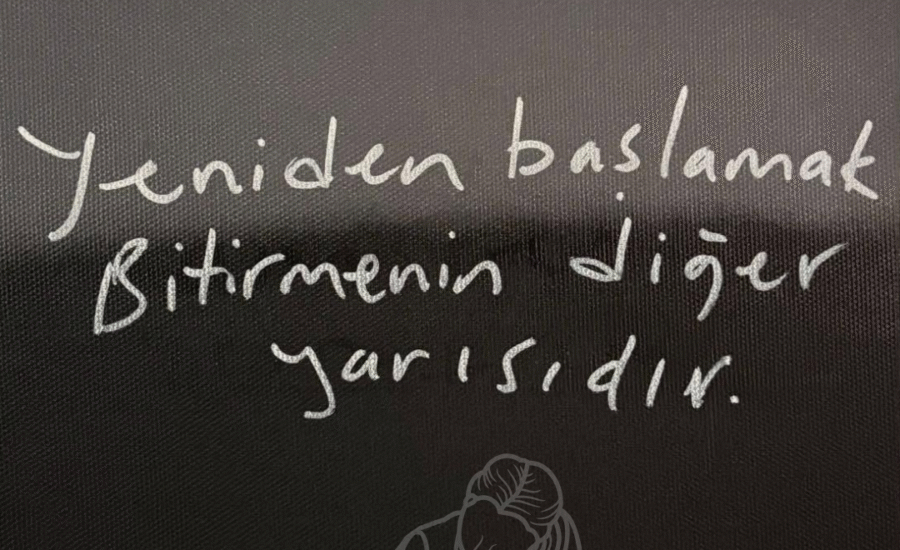 Yeniden başlamak
Bitirmenin diğer
yarısıdır.